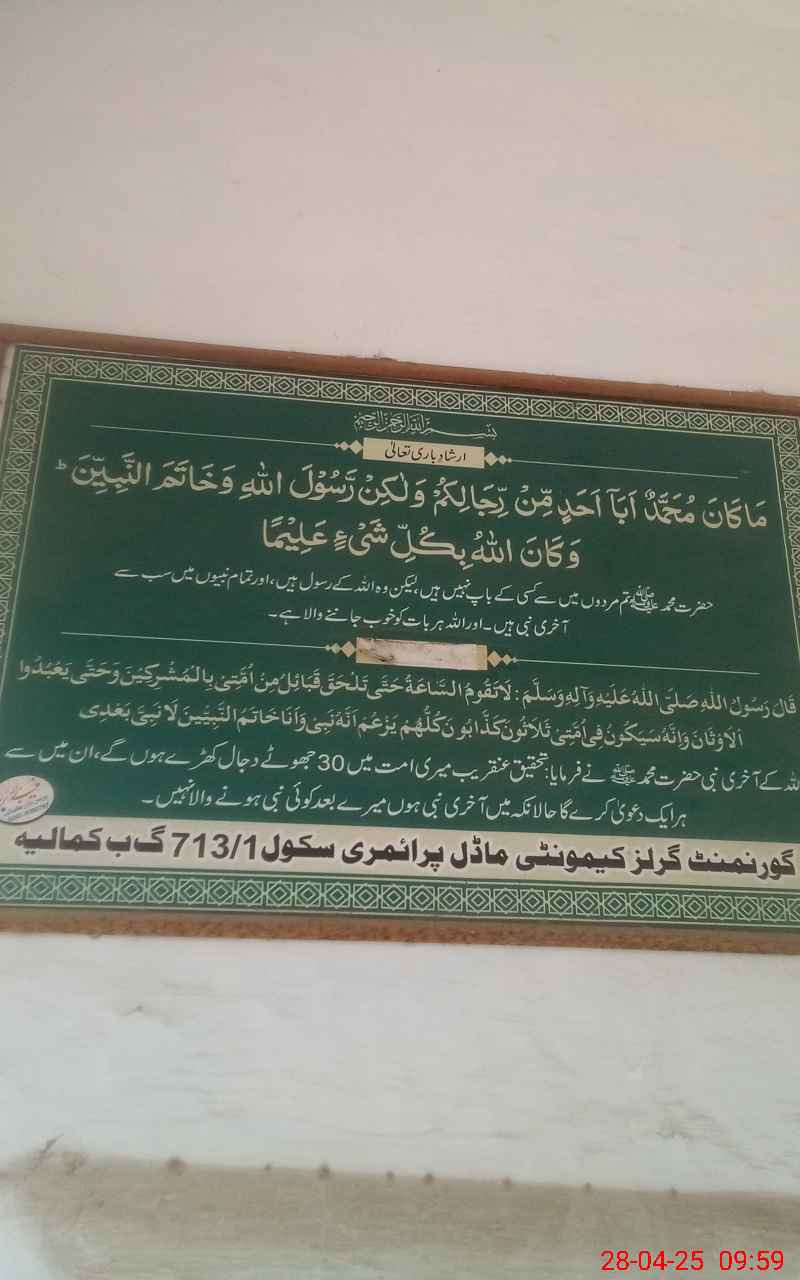 بسم الله الرحمن الرحیم
ارشاد باری تعالیٰ
مَا كَانَ مُحَمَّدٌ اَبَآ اَحَدٍ مِّنْ رِّجَالِكُمْ وَلٰكِنْ رَّسُوْلَ اللهِ وَخَاتَمَ النَّبِيّٖنَ ؕ
وَكَانَ اللهُ بِكُلِّ شَيْءٍ عَلِيْمًا
حضرت محمد ﷺ تم مردوں میں سے کسی کے باپ نہیں ہیں، لیکن وہ اللہ کے رسول ہیں، اور تمام نبیوں میں سب سے
آخری نبی ہیں۔ اور اللہ ہر بات کو خوب جاننے والا ہے۔
قَالَ رَسُوْلُ اللهِ صَلَى اللهُ عَلَيْهِ وَآلِهٖ وَسَلَّمَ: لَا تَقُوْمُ السَّاعَةُ حَتّٰى تَلْحَقَ قَبَائِلُ مِنْ اُمَّتِىْ بِالْمُشْرِكِيْنَ وَحَتّٰى يَعْبُدُوا
الْاَوْثَانَ وَاِنَّهٗ سَيَكُوْنُ فِىْ اُمَّتِىْ ثَلَاثُوْنَ كَذَّابُوْنَ كُلُّهُمْ يَزْعَمُ اَنَّهٗ نَبِىٌّ وَاَنَا خَاتَمُ النَّبِيِّيْنَ لَا نَبِىَّ بَعْدِى
اللہ کے آخری نبی حضرت محمد ﷺ نے فرمایا: تحقیق عنقریب میری امت میں 30 جھوٹے دجال کھڑے ہوں گے، ان میں سے
ہر ایک دعویٰ کرے گا حالانکہ میں آخری نبی ہوں میرے بعد کوئی نبی ہونے والا نہیں۔
گورنمنٹ گرلز کیمونٹی ماڈل پرائمری سکول 713/1 گ ب کمالیہ
28-04-25 09:59